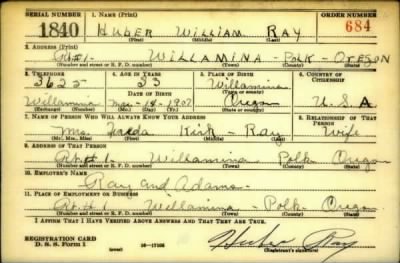 SERIAL NUMBER 1. NAME (Print) ORDER NUMBER
1840 HUBER WILLIAM RAY 684
(First) (Middle) (Last)
2. ADDRESS (Print)
Rt#1- WILLAMINA - POLK - OREGON
(Number and street or R. F. D. number) (Town) (County) (State)
3. TELEPHONE 4. AGE IN YEARS 5. PLACE OF BIRTH 6. COUNTRY OF CITIZENSHIP
3625 33 Willamina
DATE OF BIRTH (Town or county)
Willamina Mar-18-1907 Oregon U.S.A
(Exchange) (Number) (Mo.) (Day) (Yr.) (State or country)
7. NAME OF PERSON WHO WILL ALWAYS KNOW YOUR ADDRESS 8. RELATIONSHIP OF THAT PERSON
Mrs. Kirk - Ray Wife
(Mr., Mrs., Miss) (First) (Middle) (Last)
9. ADDRESS OF THAT PERSON
Rt.#1- Willamina Polk Oregon
(Number and street or R. F. D. number) (Town) (County) (State)
10. EMPLOYER'S NAME
Ray and Adams
11. PLACE OF EMPLOYMENT OR BUSINESS
Rt.#1 Willamina - Polk Oregon
(Number and street or R. F. D. number) (Town) (County) (State)
I AFFIRM THAT I HAVE VERIFIED ABOVE ANSWERS AND THAT THEY ARE TRUE.
REGISTRATION CARD
D. S. S. Form 1 16-17105 Huber Ray
(Registrant's signature)